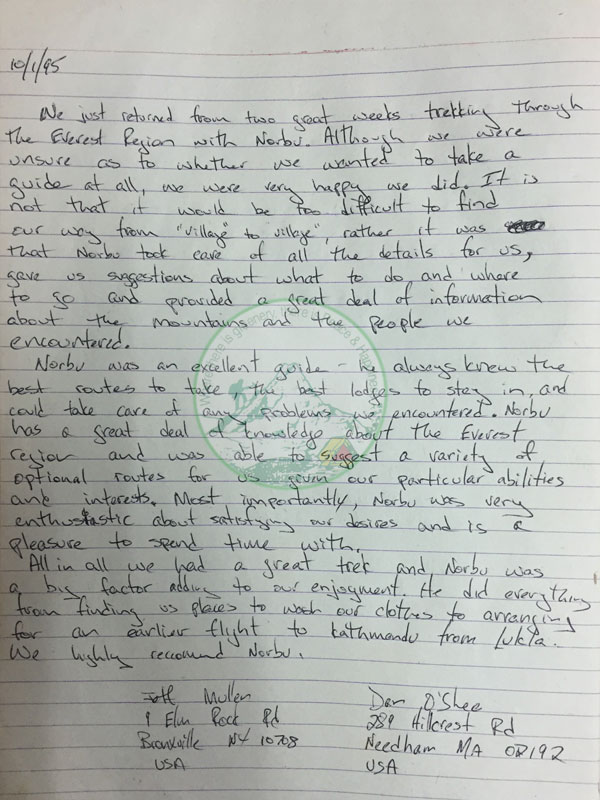 10/1/95
We just returned from two great weeks trekking through
the Everest Region with Norbu. Although we were
unsure as to whether we wanted to take a
guide at all, we were very happy we did. It is
not that it would be too difficult to find
our way from "village" to village", rather it was
that Norbu took care of all the details for us,
gave us suggestions about what to do and where
to go and provided a great deal of information
about the mountains and the people we
encountered.
Norbu was an excellent guide - he always knew the
best routes to take, the best lodges to stay in, and
could take care of any problems we encountered. Norbu
has a great deal of knowledge about the Everest
region and was able to suggest a variety of
optional routes for us given our particular abilities
and interests. Most importantly, Norbu was very
enthusiastic about satisfying our desires and is a
pleasure to spend time with.
All in all we had a great trek and Norbu was
a big factor adding to our enjoyment. He did everything
from finding us places to wash our clothes to arranging
for an earlier flight to Kathmandu from Lukla.
We highly reccomend Norbu.
Mullen
9 Elm Rock Rd
Bronxville NY 10708
USA
Dan O'Shea
289 Hillcrest Rd
Needham MA 02192
USA
where is greenery, there is Peace &